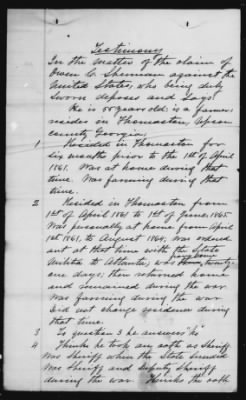 Testimony
In the matter of the claim of
Owen C. Sherman against the
United States, who being duly
sworn deposes and says:
He is 65 years old: is a farmer
resides in Thomaston, Upson
county Georgia,
1 Resided in Thomaston for
six months prior to the 1st of April
1861. Was at home during that
time. Was farming during that
time.
2 Resided in Thomaston from
1st of April 1861 to 1st of June 1865
Was personally at home from April
1st 1861, to August 1864, was ordered
out at that time with the State
Militia to Atlanta, was gone
one days; then returned home
and remained during the war.
Was farming during the war
Did not change residence during
that time.
3 To question 3 he answers "No"
4 Thinks he took an oath as Sheriff
was Sheriff when the State seceded
Was Sheriff and Deputy Sheriff
during the war. Thinks the oath